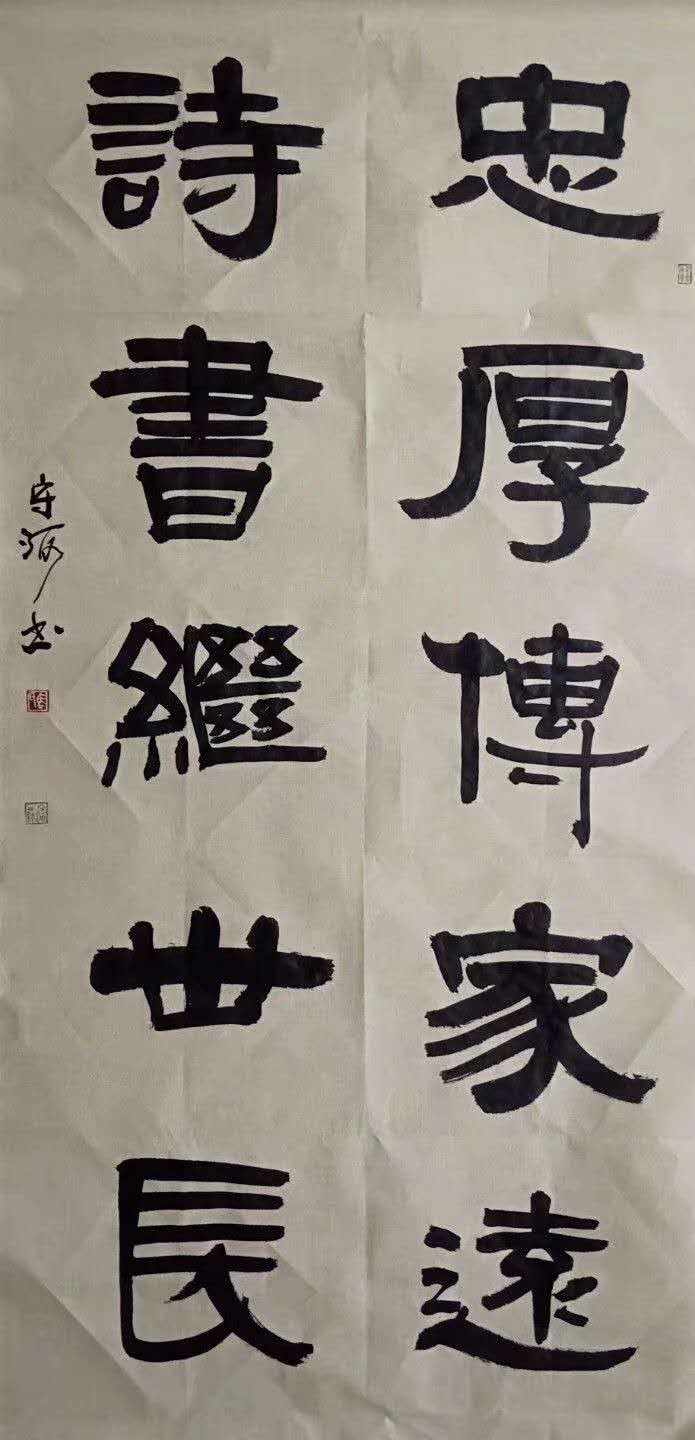 忠厚傳家遠
詩書繼世長
守河书